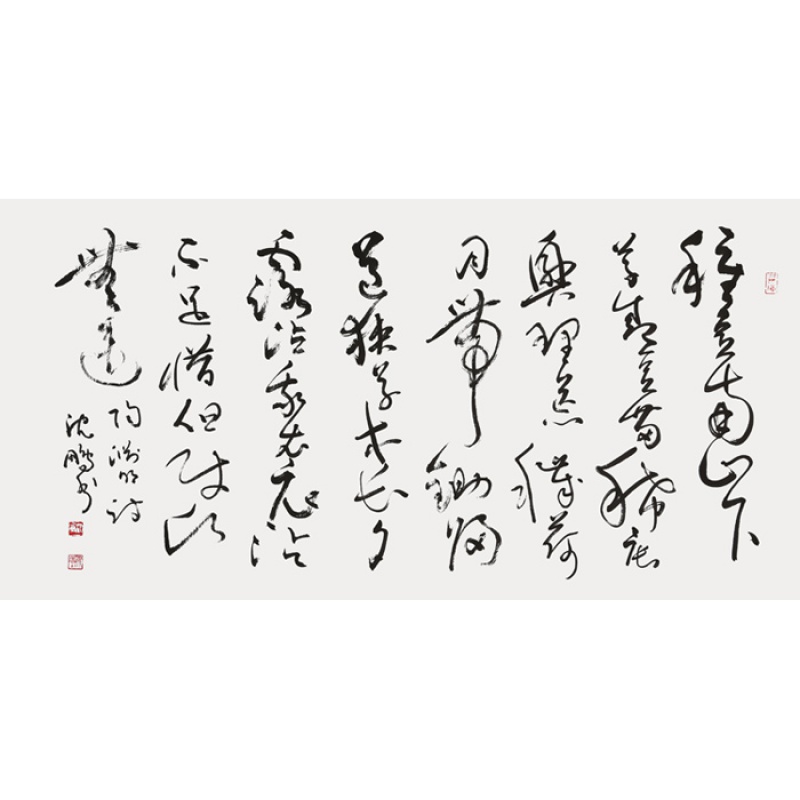 種豆南山下
草盛豆苗稀晨
興理荒穢荷
月帶鋤歸
道狹草木長夕
露沾我衣衣沾
不足惜但使願
無違
陶淵明詩
沈鵬書